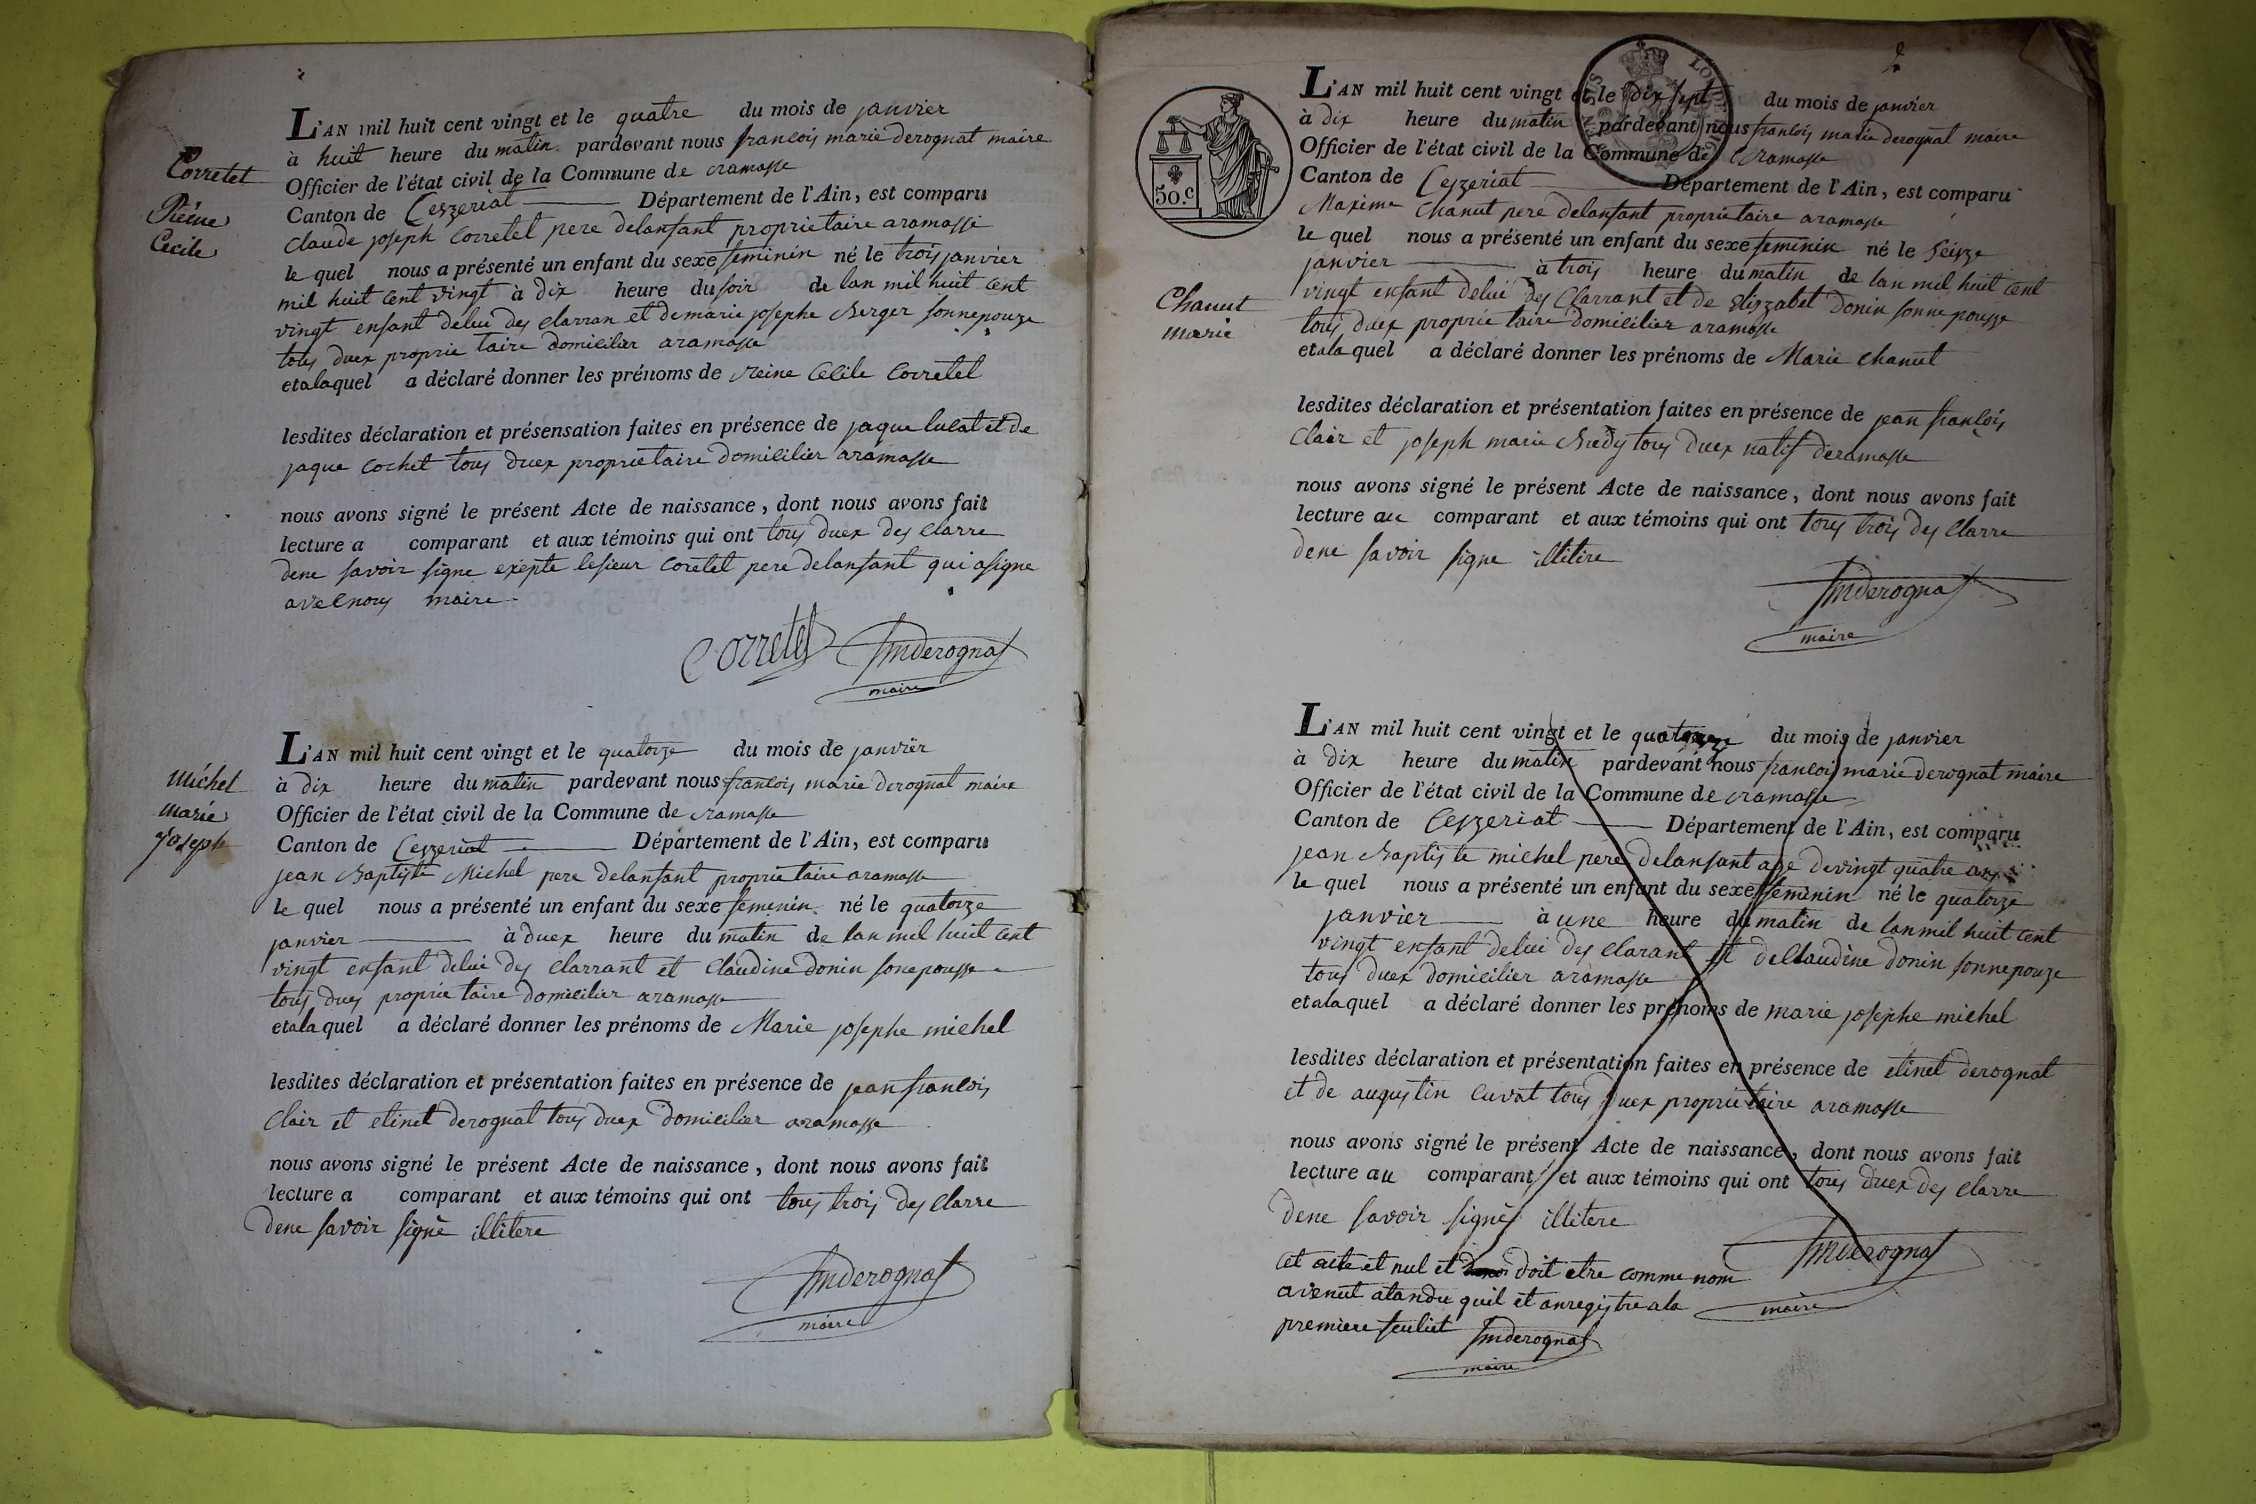 Corretet
Reine
Cecile
L'AN mil huit cent vingt et le quatre du mois de janvier
à huit heure du matin pardevant nous francois marie derognat maire
Officier de l'état civil de la Commune de ramasse
Canton de Ceyzeriat Département de l'Ain, est comparu
Claude joseph Corretet pere delanfant proprietaire aramasse
le quel nous a présenté un enfant du sexe feminin né le trois janvier
mil huit cent vingt à dix heure du soir de lan mil huit cent
vingt enfant delui des clarran et demarie josephe Berger sonnepouze
tous duex proprie taire domicilier aramasse
etalaquel a déclaré donner les prénoms de Reine Cecile Corretet
lesdites déclaration et présensation faites en présence de jaque lucat et de
jaque cochet tous duex proprietaire domicilier aramasse
nous avons signé le présent Acte de naissance, dont nous avons fait
lecture a comparant et aux témoins qui ont tous duex des clarre
dene savoir signe exepte lesieur coretet pere delanfant qui asigne
avecnous maire
Corretet fmderognat
maire
Michel
marie
Joseph
L'AN mil huit cent vingt et le quatorze du mois de janvier
à dix heure du matin pardevant nous francois marie derognat maire
Officier de l'état civil de la Commune de ramasse
Canton de Ceyzeriat Département de l'Ain, est comparu
jean Baptiste Michel pere delanfant proprietaire aramasse
le quel nous a présenté un enfant du sexe femenin né le quatorze
janvier à duex heure du matin de lan mil huit cent
vingt enfant delui des clarrant et Claudine donin sonepousse
tous dues proprie taire domicilier aramasse
etala quel a déclaré donner les prénoms de Marie josephe michel
lesdites déclaration et présentation faites en présence de jean francois
Clair et etinet derognat tous duex domicilier aramasse
nous avons signé le présent Acte de naissance, dont nous avons fait
lecture a comparant et aux témoins qui ont tous trois des clarre
dene savoir signé illitere
fmderognat
maire
2
50.c
L'AN mil huit cent vingt et le dix sept du mois de janvier
à dix heure du matin pardevant nous francois marie derognat maire
Officier de l'état civil de la Commune de Ramasse
Canton de Ceyzeriat Département de l'Ain, est comparu
Maxime Chanut pere delanfant proprietaire aramasse
le quel nous a présenté un enfant du sexe feminin né le seizze
janvier à trois heure du matin de lan mil huit cent
vingt enfant delui des clarrant et de elizzabet donin sonne pousse
tous duex proprie taire domicilier aramasse
etala quel a déclaré donner les prénoms de Marie chanut
Chanut
marie
lesdites déclaration et présentation faites en présence de jean francois
Clair et joseph marie Bredy tous duex natif deramasse
nous avons signé le présent Acte de naissance, dont nous avons fait
lecture au comparant et aux témoins qui ont tous trois des clarre
dene savoir signe illitere
fmderognat
maire
L'AN mil huit cent vingt et le quatorze du mois de janvier
à dix heure du matin pardevant nous francois marie derognat maire
Officier de l'état civil de la Commune de ramasse
Canton de Ceyzeriat Département de l'Ain, est comparu
jean Baptiste michel pere delanfant age devingt quatre ans
le quel nous a présenté un enfant du sexe feminin né le quatorze
janvier à une heure du matin de lan mil huit cent
vingt enfant delui des clarant et deClaudine donin sonnepouze
tous duex domicilier aramasse
etala quel a déclaré donner les prénoms de marie josephe michel
lesdites déclaration et présentation faites en présence de etinet derognat
et de augustin cuvat tous duex proprietaire aramasse
nous avons signé le présent Acte de naissance, dont nous avons fait
lecture au comparant et aux témoins qui ont tous duex des clarre
dene savoir signé illitere
fmderognat
maire
Cet acte et nul et doit etre comme nom
avenut atandu quil et anregistre ala
premiere feuliet fmderognat
maire